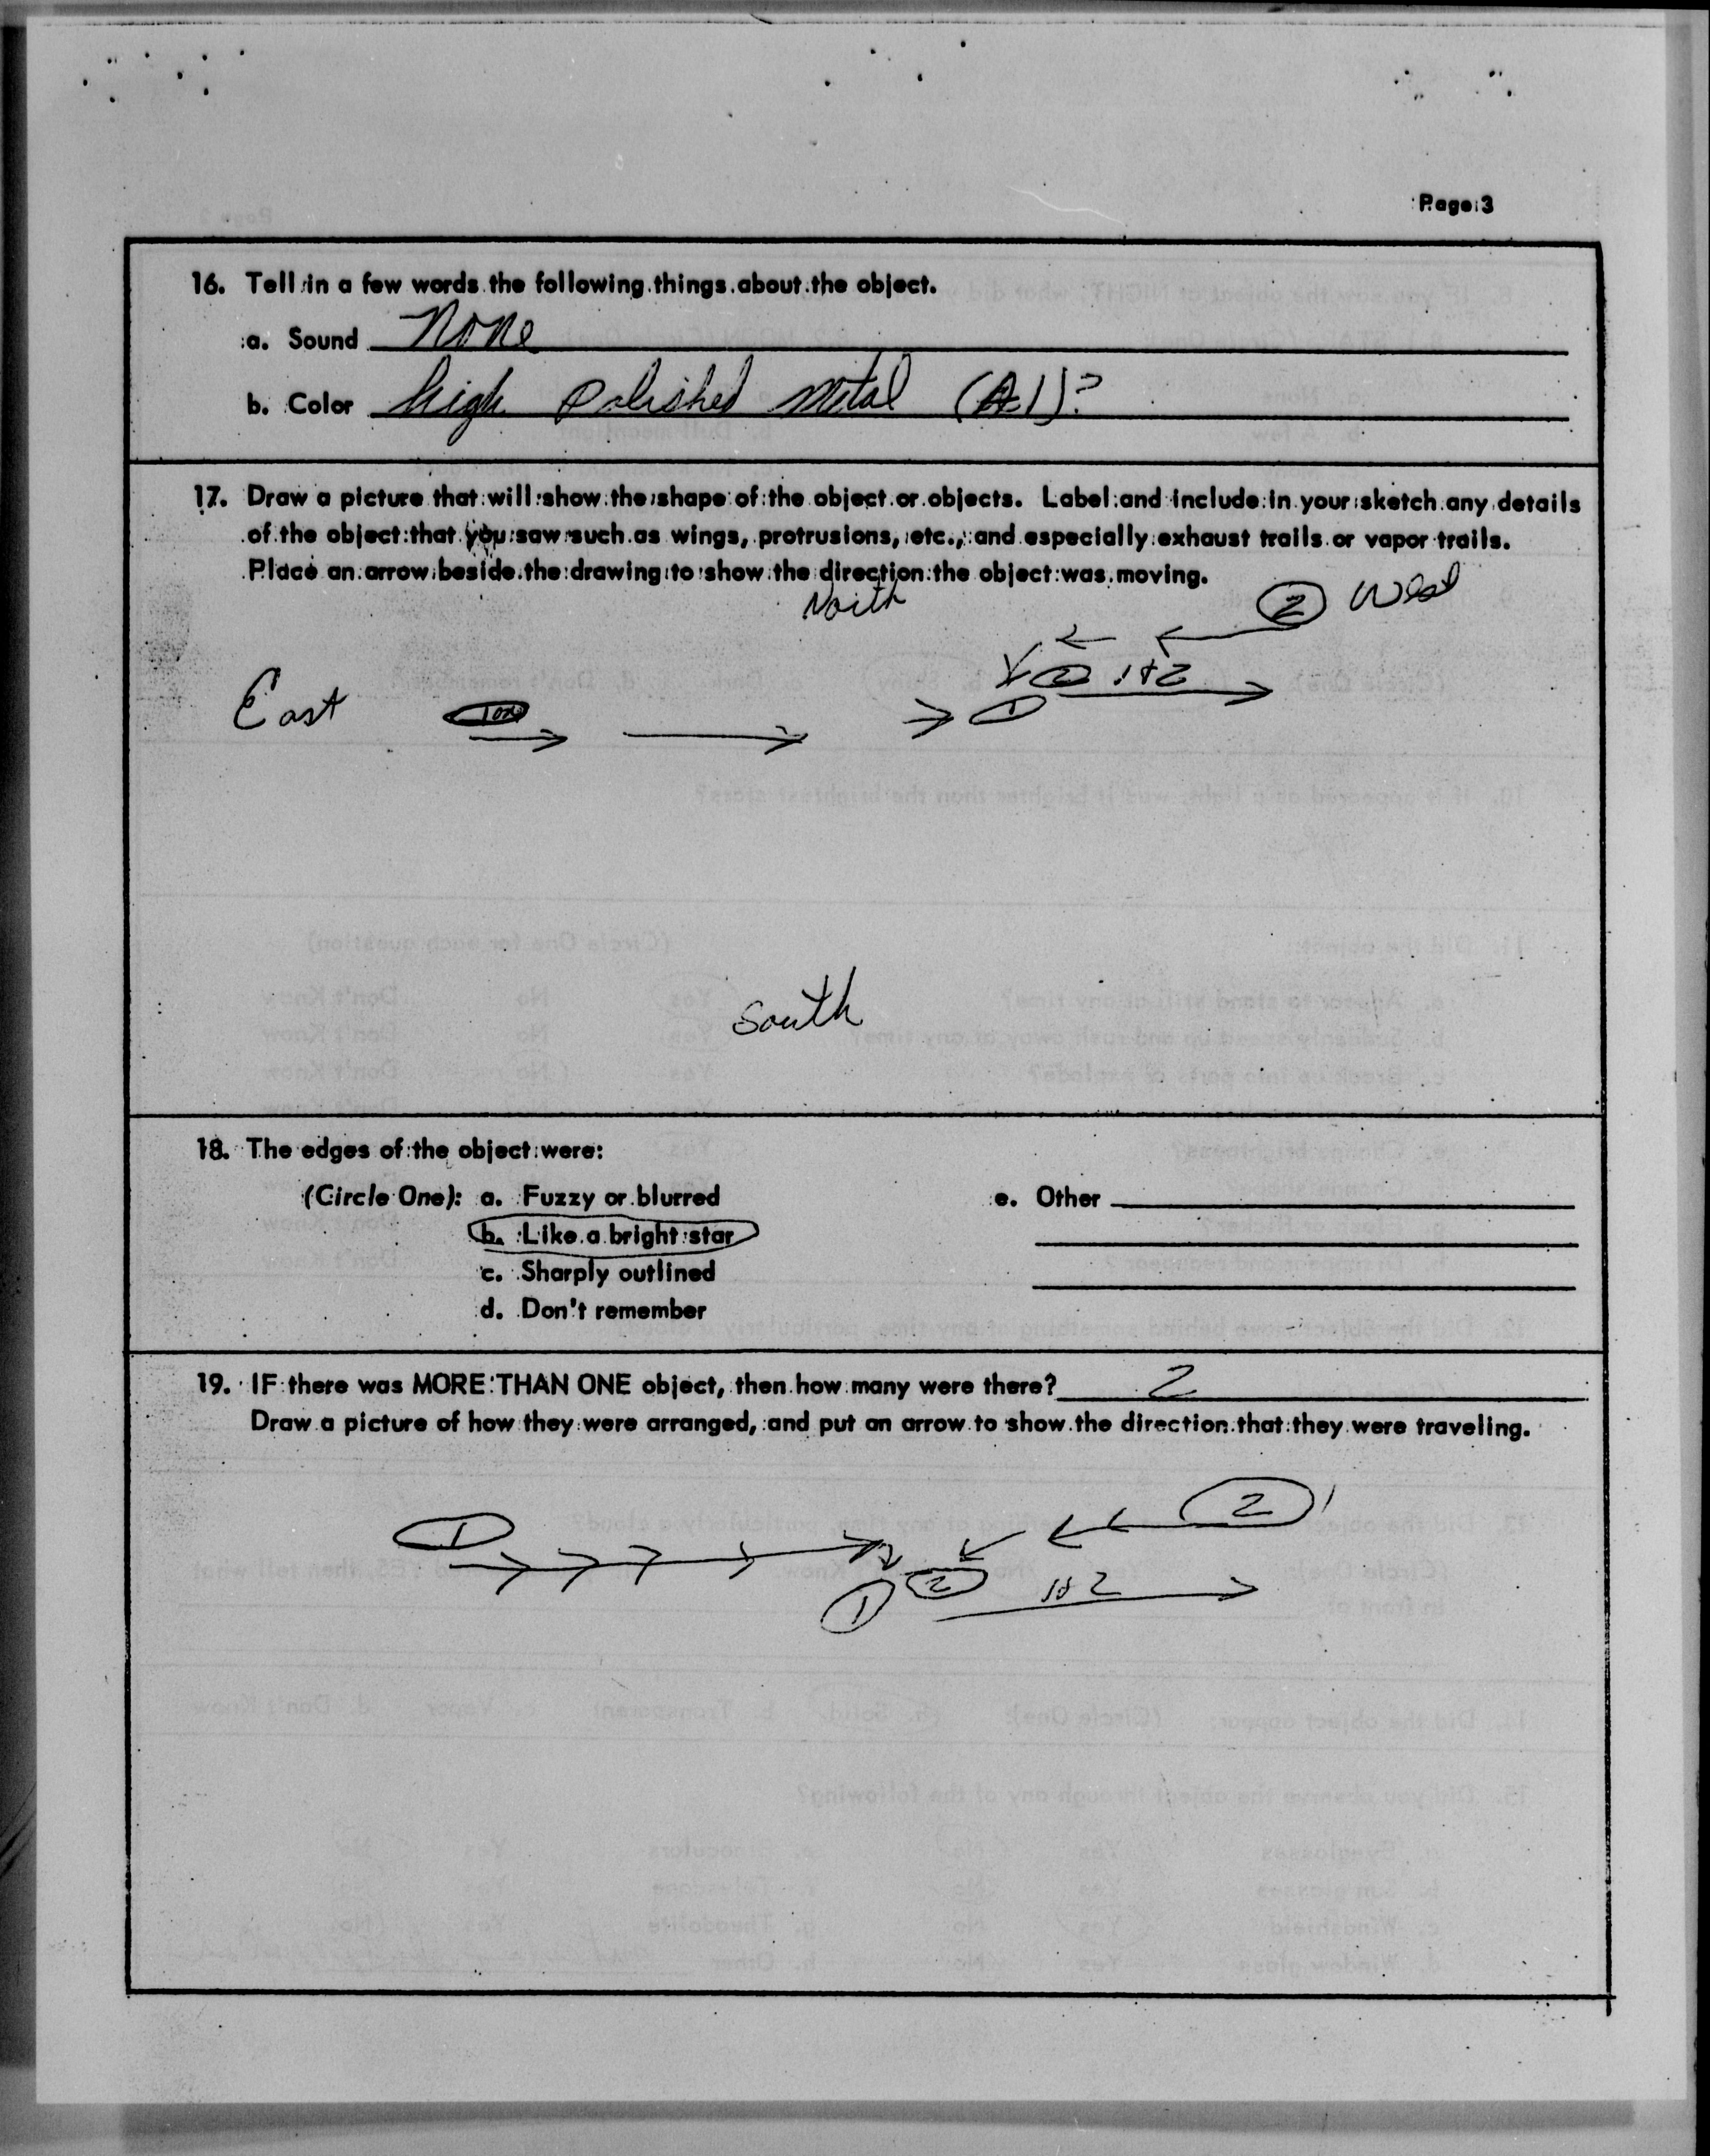 Page 3
16. Tell in a few words the following things about the object.
a. Sound None
b. Color high polished metal (Al)?
17. Draw a picture that will show the shape of the object or objects. Label and include in your sketch any details
of the object that you saw such as wings, protrusions, etc., and especially exhaust trails or vapor trails.
Place an arrow beside the drawing to show the direction the object was moving.
North
2 West
2 1+2
East
1
South
18. The edges of the object were:
(Circle One): a. Fuzzy or blurred e. Other
b. Like a bright star
c. Sharply outlined
d. Don't remember
19. IF there was MORE THAN ONE object, then how many were there? 2
Draw a picture of how they were arranged, and put an arrow to show the direction that they were traveling.
1 2
1 2 1+2